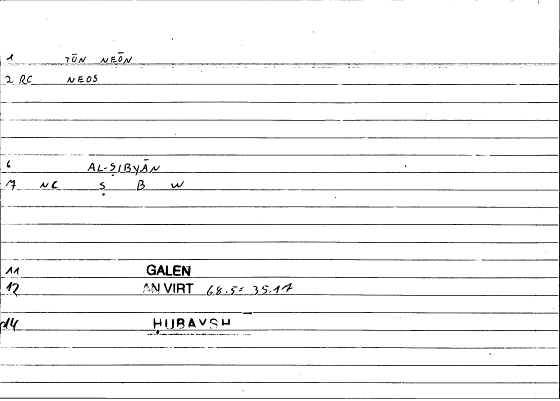 1 TŌN NEŌN
2 RC NEOS
6 AL-ṢIBYĀN
7 NC Ṣ B W
11 GALEN
12 AN VIRT 68.5 = 35.17
14 ḤUBAYSH